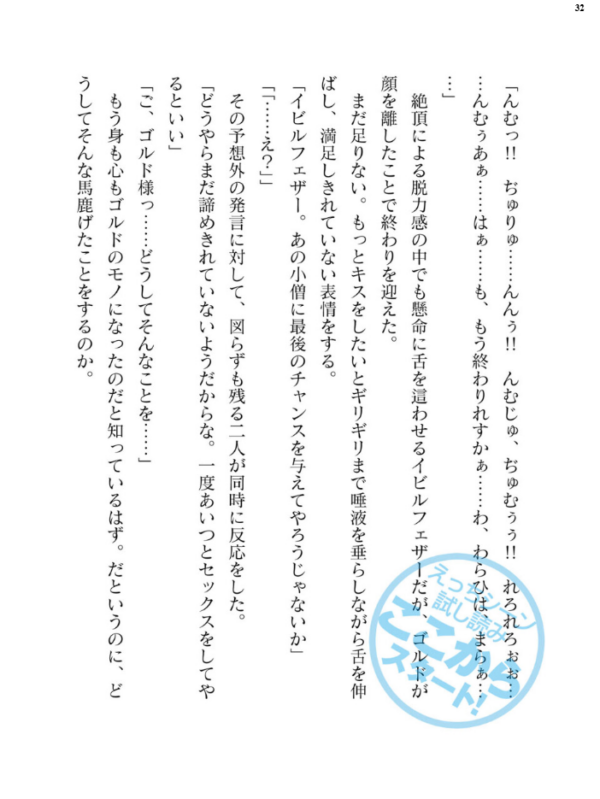 32
「んむっ!! ちゅりゅ……んんぅ!! んむじゅ、ぢゅむぅぅ!! れろれろぉぉ…
…んむぅあぁ……はぁ……も、もう終わりれすかぁ……わ、わらひは、まらぁ…
…」
絶頂による脱力感の中でも懸命に舌を這わせるイビルフェザーだが、ゴルドが
顔を離したことで終わりを迎えた。
まだ足りない。もっとキスをしたいとギリギリまで唾液を垂らしながら舌を伸
ばし、満足しきれていない表情をする。
「イビルフェザー。あの小僧に最後のチャンスを与えてやろうじゃないか」
「「……え?」」
その予想外の発言に対して、図らずも残る二人が同時に反応をした。
「どうやらまだ諦めきれていないようだからな。一度あいつとセックスをしてや
るといい」
「ご、ゴルド様っ……どうしてそんなことを……」
もう身も心もゴルドのモノになったのだと知っているはず。だというのに、ど
うしてそんな馬鹿げたことをするのか。
えっちシーン
試し読み
ここから
スタート!